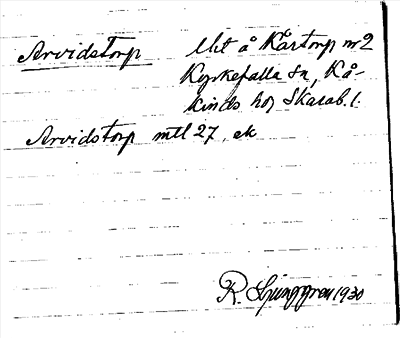 Arvidstorp Utj å Kårtorp nr 2
Kyrkefalla sn, Kå-
kinds hd, Skarab. l.
Arvidstorp mtl 27, ek
R. Ljunggren 1930